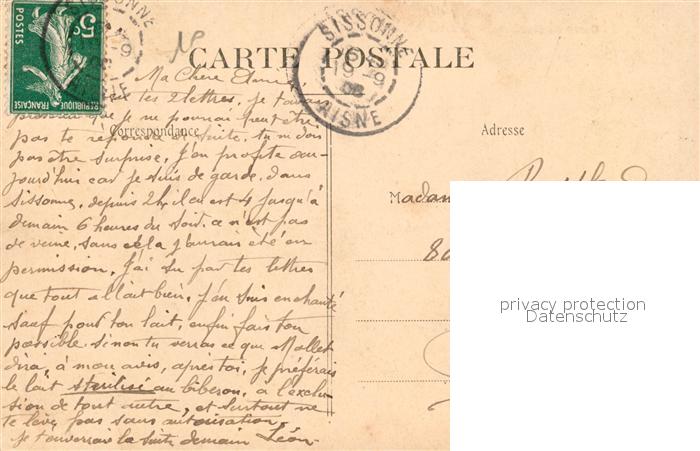 SISSONNE
5c
POSTES
REPUBLIQUE FRANÇAISE
CARTE POSTALE
SISSONNE
19-9
08
AISNE
Ma Chère
tes 2 lettres, je t'avais
que je ne pourrai peut être
Correspondance
Adresse
pas te répondre de suite, tu ne dois
pas être surprise, j'en profite au-
jourd'hui car je suis de garde, dans
Sissonne, depuis 2h, il en est 4 jusqu'à
demain 6 heures du soir. ce n'est pas
de veine, sans cela j'aurais été en
permission, j'ai su par tes lettres
que tout allait bien, j'en suis enchanté
sauf pour ton lait, enfin fais ton
possible. sinon tu verras ce que Mollet
dira, à mon avis, après toi, je préférais
le lait stérilisé au biberon, à l'exclu-
sion de tout autre, et surtout ne
te lève pas sans autorisation,
je t'enverrai la suite demain Léon
Madam
80
privacy protection
Datenschutz